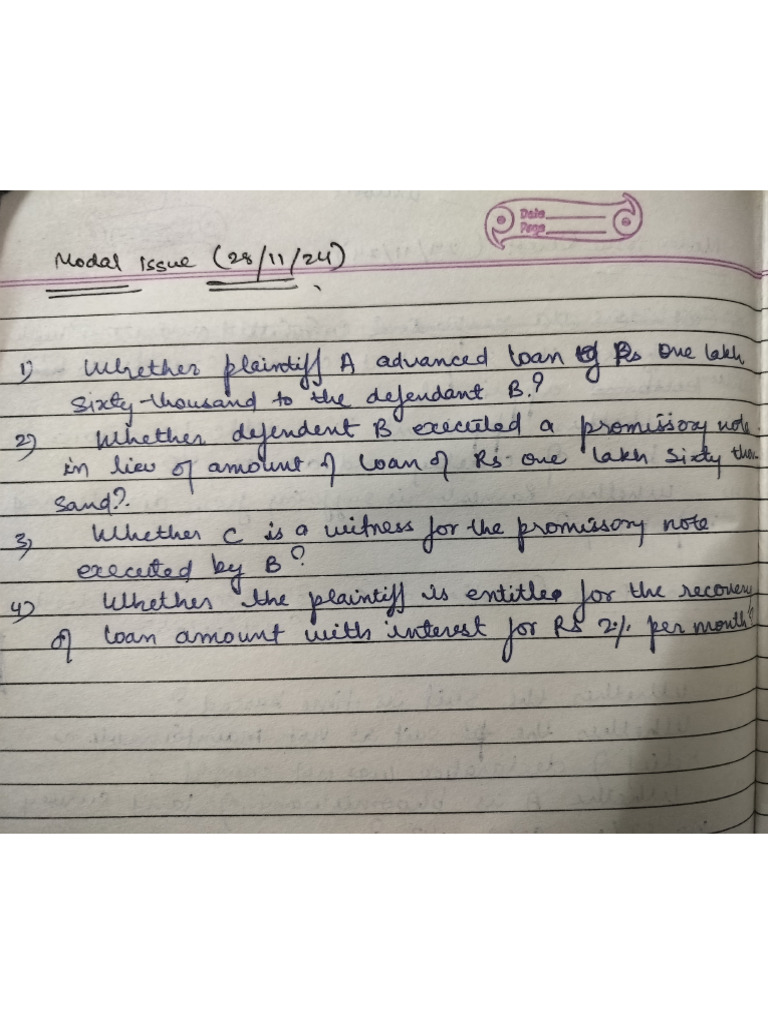 Date
Page
Modal Issue (28/11/24)
1) Whether plaintiff A advanced loan of Rs One lakh
Sixty-thousand to the defendant B.?
2) Whether defendent B executed a promissory note
in liev of amount of loan of Rs one lakh Sixty thou-
sand?
3) Whether C is a witness for the promissory note
executed by B?
4) Whether the plaintiff is entitled for the recovery
of loan amount with interest for Rs 2% per month?